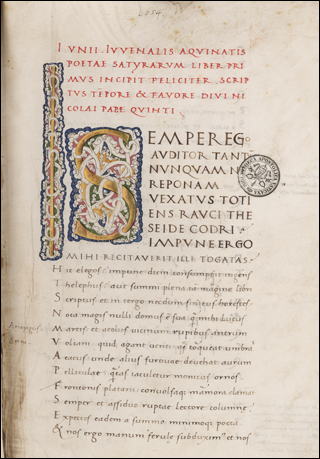 IVNII IVVENALIS AQVINATIS
POETAE SATYRARVM LIBER PRI
MVS INCIPIT FELICITER. SCRIP
TVS TEPORE & FAVORE DIVI NI
COLAI PAPE QVINTI.
SEMPER EGO
AVDITOR TANT
NVNQVAM NE
REPONAM
VEXATVS TOTI
ENS RAVCI THE
SEIDE CODRI
IMPVNE ERGO
MIHI RECITAVERIT ILLE TOGATAS
Hic elegos? impune diem consumpserit ingens
Telephus? aut summi plena iam margine libri
Scriptus et in tergo necdum finitus horestes
Nota magis nulli domus est sua quam mihi lucus
Martis et aeoliis vicinum rupibus antrum
Quid agant venti quas torqueat umbras
Aeacus unde alius furtivae devehat aurum
Pelliculae quantas iaculetur monicus ornos
Frontonis platani convulsaque marmora clamant
Semper et assiduo ruptae lectore columnae
Expectes eadem a summo minimoque poeta
Et nos ergo manum ferule subduximus et nos